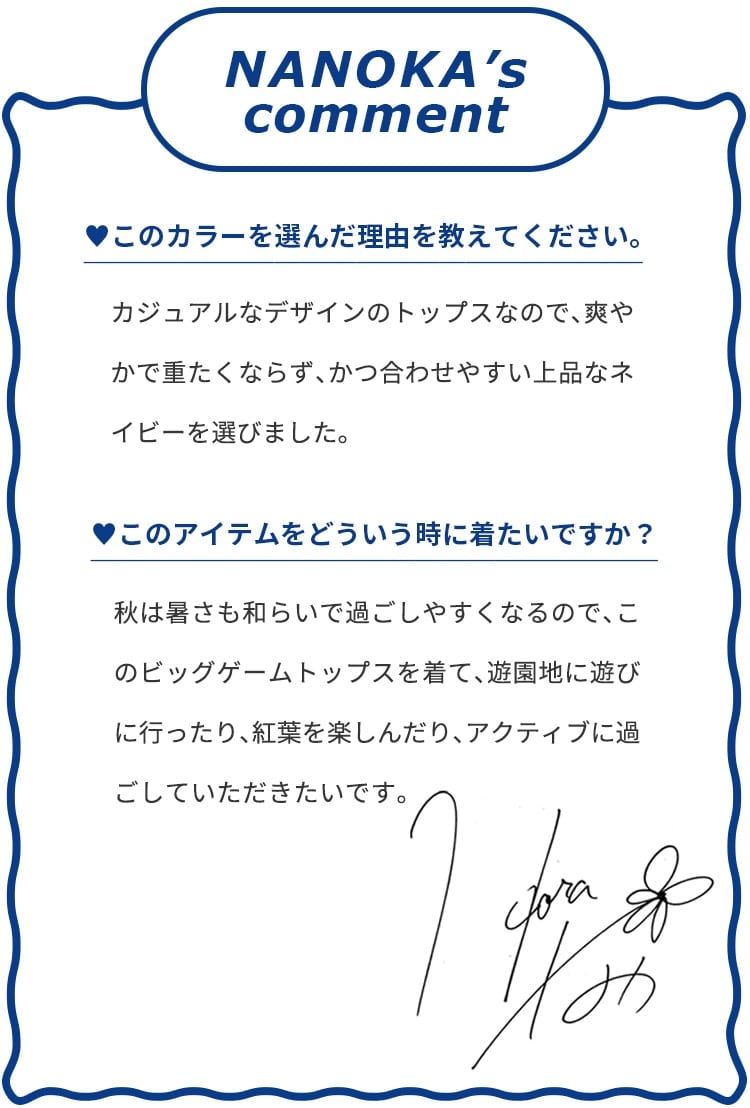 NANOKA’s
comment
♥このカラーを選んだ理由を教えてください。
カジュアルなデザインのトップスなので、爽や
かで重たくならず、かつ合わせやすい上品なネ
イビーを選びました。
♥このアイテムをどういう時に着たいですか？
秋は暑さも和らいで過ごしやすくなるので、こ
のビッグゲームトップスを着て、遊園地に遊び
に行ったり、紅葉を楽しんだり、アクティブに過
ごしていただきたいです。